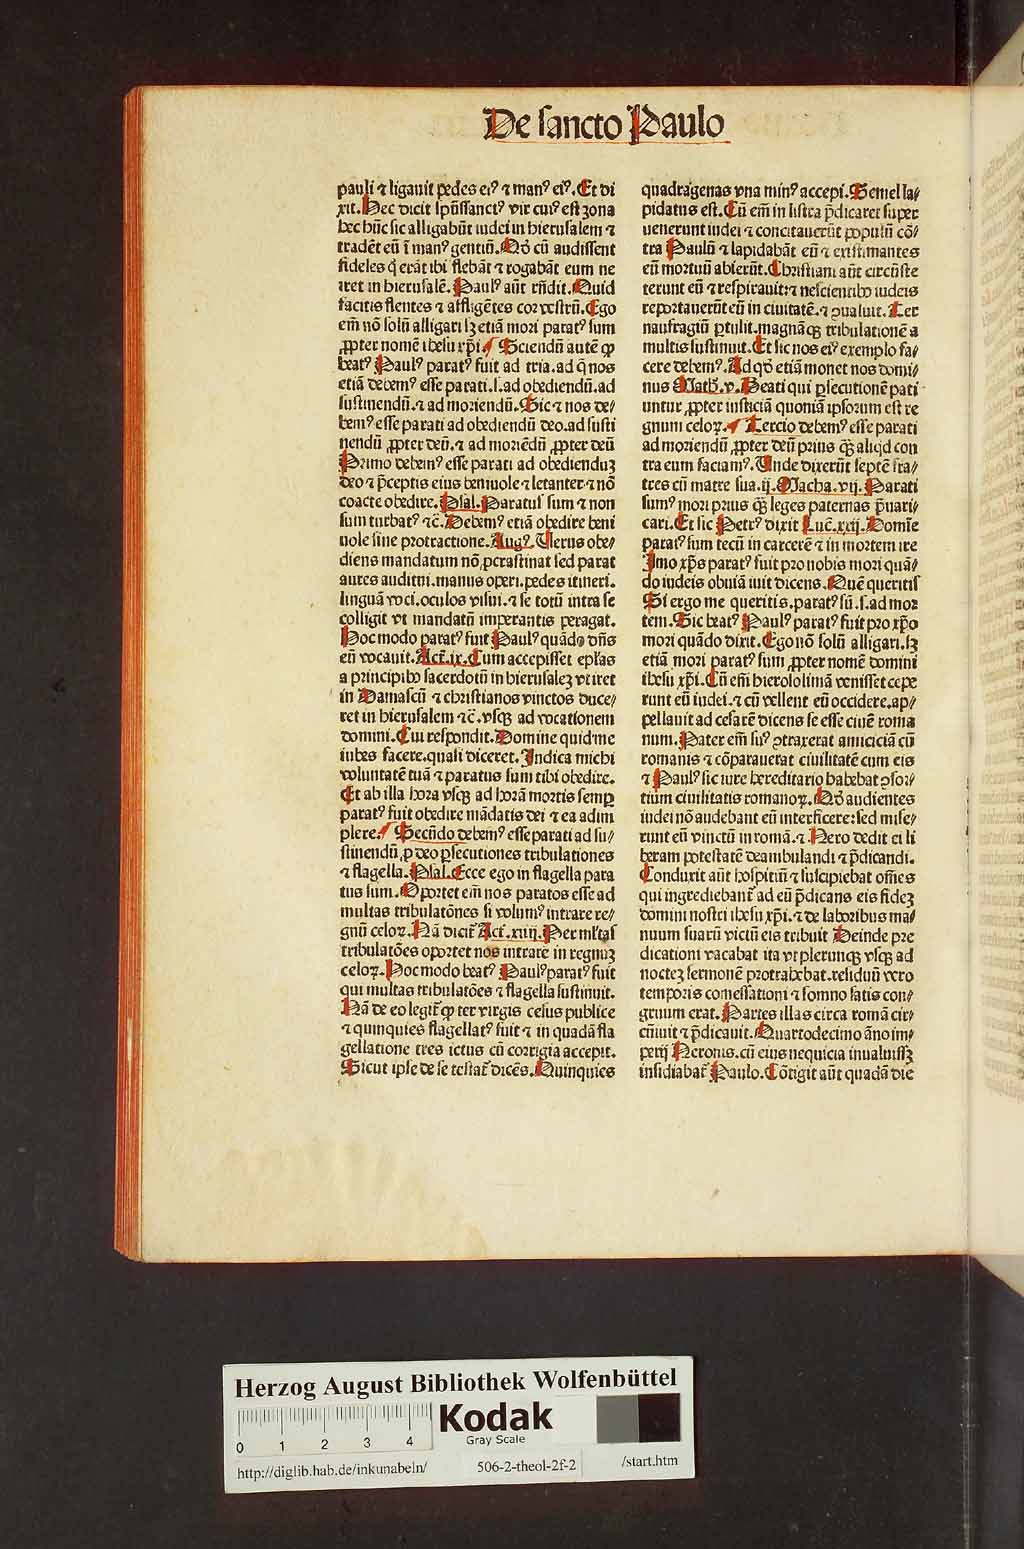 De sancto Paulo
pauli ⁊ ligauit pedes eiꝰ ⁊ manꝰ eiꝰ. Et di
xit. Hec dicit spūssanctꝰ vir cuiꝰ est zona
hec hūc sic alligabūt iudei in hierusalem ⁊
tradēt eū ī manꝰ gentiū. Qđ cū audissent
fideles q̇ erāt ibi flebāt ⁊ rogabāt eum ne
iret in hierusalē. Paulꝰ aūt rn̄dit. Quid
facitis flentes ⁊ affligētes cor vestrū. Ego
em̄ nō solū alligari sꝫ etiā mori paratꝰ sum
ꝓpter nomē ihesu xp̄i. Sciendū autē ꝙ
beatꝰ Paulꝰ paratꝰ fuit ad tria. ad q̄ nos
etiā debemꝰ esse parati. s. ad obediendū. ad
sustinendū. ⁊ ad moriendū. Sic ⁊ nos de⸗
bemꝰ esse parati ad obediendū deo. ad susti
nendū ꝓpter deū. ⁊ ad moriēdū ꝓpter deū
Primo debemꝰ esse parati ad obedienduꝫ
deo ⁊ p̄ceptis eius beniuole ⁊ letanter ⁊ nō
coacte obedire. Psal. Paratus sum ⁊ non
sum turbatꝰ ⁊c̄. Debemꝰ etiā obedire beni
uole sine protractione. Augꝰ. Verus obe⸗
diens mandatum nō ꝓcrastinat sed parat
aures auditui. manus operi. pedes itineri.
linguā voci. oculos visui. ⁊ se totū intra se
colligit vt mandatū imperantis peragat.
Hoc modo paratꝰ fuit Paulꝰ quādo dn̄s
eū vocauit. Act. ix. Cum accepisset ep̄las
a principibꝰ sacerdotū in hierusaleꝫ vt iret
in Damascū ⁊ christianos vinctos duce⸗
ret in hierusalem ⁊c̄. vsqꝫ ad vocationem
domini. Cui respondit. Domine quid me
iubes facere. quasi diceret. Indica michi
voluntatē tuā ⁊ paratus sum tibi obedire.
Et ab illa hora vsqꝫ ad horā mortis semꝑ
paratꝰ fuit obedire mādatis dei ⁊ ea adim
plere. Secūdo debemꝰ esse parati ad su⸗
stinendū ꝓ deo ꝑsecutiones tribulationes
⁊ flagella. Psal. Ecce ego in flagella para
tus sum. Oportet em̄ nos paratos esse ad
multas tribulatōnes si volumꝰ intrare re⸗
gnū celoꝝ. Nā dicit᷑ Act. xiiij. Per ml̄tas
tribulatōes oportet nos intrare in regnuꝫ
celoꝝ. Hoc modo beatꝰ Paulꝰ paratꝰ fuit
qui multas tribulatōes ⁊ flagella sustinuit.
Nā de eo legit᷑ ꝙ ter virgis cesus publice
⁊ quinquies flagellatꝰ fuit ⁊ in quadā fla
gellatione tres ictus cū corrigia accepit.
Sicut ipse de se testat᷑ dicēs. Quinquies
quadragenas vna minꝰ accepi. Semel la⸗
pidatus est. Cū em̄ in listra p̄dicaret super
uenerunt iudei ⁊ concitauerūt populū cō⸗
tra Paulū ⁊ lapidabāt eū ⁊ existimantes
eū mortuū abierūt. Christiani aūt circūste
terunt eū ⁊ respirauit: ⁊ nescientibꝰ iudeis
reportauerūt eū in ciuitatē. ⁊ ꝯualuit. Ter
naufragiū ꝑtulit. magnāqꝫ tribulationē a
multis sustinuit. Et sic nos eiꝰ exemplo fa⸗
cere debemꝰ. Ad qđ etiā monet nos domi⸗
nus Math. v. Beati qui ꝑsecutionē pati
untur ꝓpter iusticiā quoniā ipsorum est re
gnum celoꝝ. Tercio debemꝰ esse parati
ad moriendū ꝓpter deū prius qꝫ̄ aliqd con
tra eum faciamꝰ. Unde dixerūt septē fra⸗
tres cū matre sua. ij. Macha. vij. Parati
sumꝰ mori prius qꝫ̄ leges paternas p̄uari⸗
cari. Et sic Petrꝰ dixit Luc̄. xxij. Domīe
paratꝰ sum tecū in carcerē ⁊ in mortem ire
Imo xp̄s paratꝰ fuit pro nobis mori quā⸗
do iudeis obuiā iuit dicens. Quē queritis
Si ergo me queritis. paratꝰ sū. s. ad mor
tem. Sic beatꝰ Paulꝰ paratꝰ fuit pro xp̄o
mori quādo dixit. Ego nō solū alligari. sꝫ
etiā mori paratꝰ sum ꝓpter nomē domini
ihesu xp̄i. Cū em̄ hierosolimā venisset cepe
runt eū iudei. ⁊ cū vellent eū occidere. ap⸗
pellauit ad cesarē dicens se esse ciuē roma
num. Pater em̄ suꝰ ꝯtraxerat amiciciā cū
romanis ⁊ cōparauerat ciuilitatē cum eis
⁊ Paulꝰ sic iure hereditario habebat ꝯsor⸗
tium ciuilitatis romanoꝝ. Qđ audientes
iudei nō audebant eū interficere: sed mise⸗
runt eū vinctū in romā. ⁊ Nero dedit ei li
beram potestatē deambulandi ⁊ p̄dicandi.
Conduxit aūt hospitiū ⁊ suscipiebat oīnes
qui ingrediebant᷑ ad eū p̄dicans eis fideꝫ
domini nostri ihesu xp̄i. ⁊ de laboribus ma⸗
nuum suarū victū eis tribuit Deinde pre
dicationi vacabat ita vt plerunqꝫ vsqꝫ ad
nocteꝫ sermonē protrahebat. residuū vero
temporis comessationi ⁊ somno satis con⸗
gruum erat. Partes illas circa romā cir⸗
cūiuit ⁊ p̄dicauit. Quartodecimo āno im⸗
perij Neronis. cū eius nequicia inualuissꝫ
insidiabat᷑ Paulo. Cōtigit aūt quadā die
Herzog August Bibliothek Wolfenbüttel
Kodak
Gray Scale
0 1 2 3 4
http://diglib.hab.de/inkunabeln/ 506-2-theol-2f-2 /start.htm